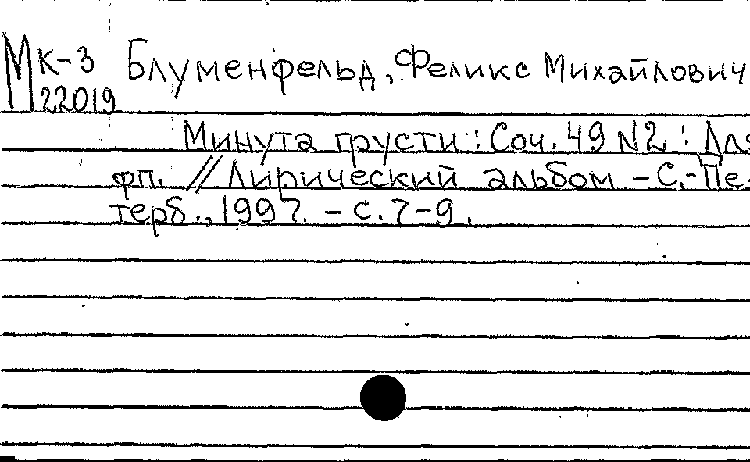 МК-3 Блуменфельд, Феликс Михайлович
22019
Минута грусти : Соч. 49 N2 : Для
фп. // Лирический альбом – С.-Пе-
терб., 1997. – с. 7-9.